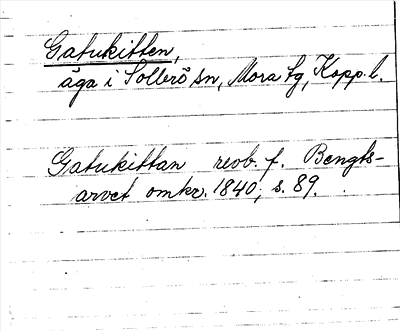 Gatukitten,
äga i Sollerö sn, Mora tg, Kopp. l.
Gatukittan revb. f. Bengts-
arvet omkr. 1840, s. 89.